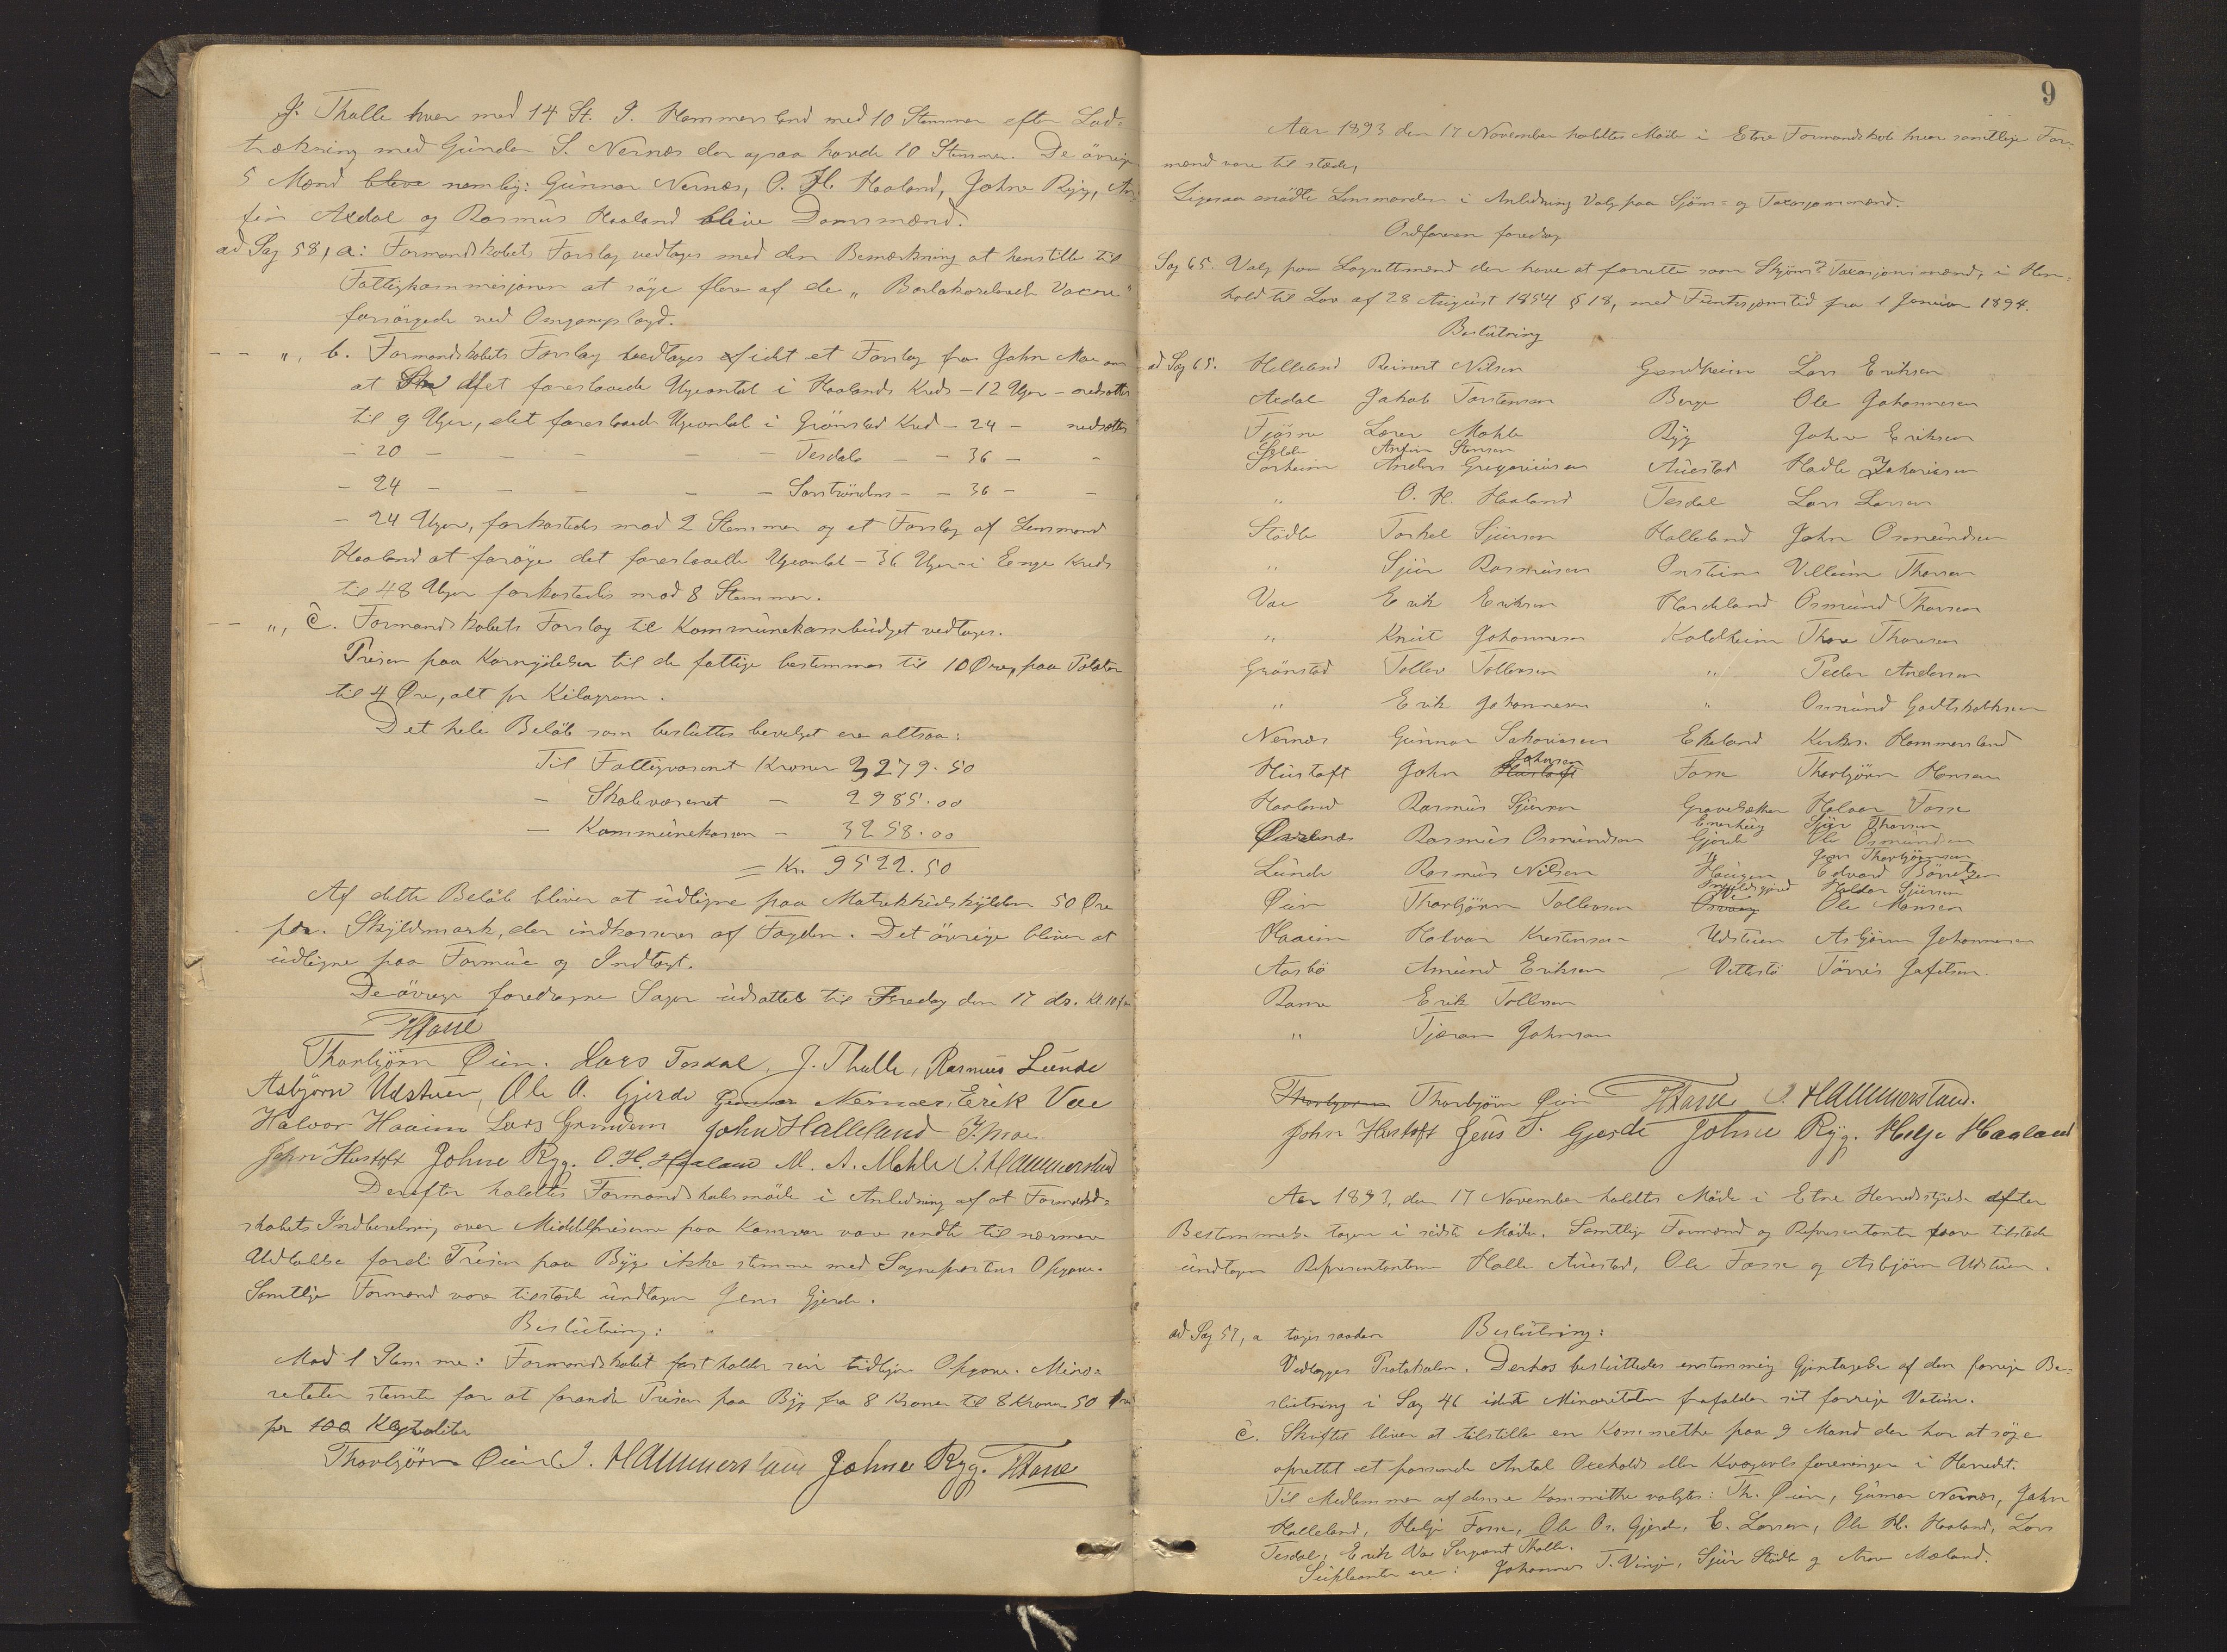 J. Thalle hver med 14 St. I. Hammersland med 10 Stemmer efter Lod-
trækning med Gunder S. Nernæs der ogsaa havde 10 Stemmer. De øvrige
5 Mænd bleve nemlig: Gunnar Nernæs, O. H. Haaland, Johne Ryg, An-
fin Axdal og Rasmus Haaland bleve Domsmænd.
ad Sag 58, a: Formandskabets Forslag vedtages med den Bemærkning at henstille til
Fattigkommisjonen at søge flere af de "
forsørgede ved Omgangslægd.
- - ", b. Formandskabets Forslag vedtages idet et Forslag fra John Moe om
at det foreslaaede Ugeantal i Haalands Kreds - 12 Uger - nedsættes
til 9 Uger, det foreslaaede Ugeantal i Grönstad Kreds - 24 - nedsættes
- 20 - - - - - Tesdals - - 36 - -
- 24 - - - - Sørstrandens - - 36 - -
- 24 Uger, forkastedes mod 2 Stemmer og et Forslag af Lensmand
Haaland at forøge det foreslaaede Ugeantal - 36 Uger - i Enge Kreds
til 48 Uger forkastedes mod 8 Stemmer.
- - ", c. Formandskabets Forslag til Kommunekassebudget vedtages.
Prisen paa Kornydelser til de fattige bestemmes til 10 Øre, paa Poteter
til 4 Øre, alt pr Kilogram.
Det hele Beløb som besluttes bevilget ere altsaa:
Til Fattigvæsenet Kroner 3279.50
- Skolevæsenet - 2985.00
- Kommunekassen - 3258.00
= Kr. 9522.50
Af dette Beløb bliver at udligne paa Matrikkulskylden 50 Øre
pr. Skyldmark, der indkasseres af Fogden. Det øvrige bliver at
udligne paa Formue og Indtægt.
De øvrige foredragne Sager udsættes til Fredag den 17 ds. Kl. 10 fm
HFosse
Thorbjørn Øien. Lars Tesdal, J. Thalle, Rasmus Lunde
Asbjørn Udstuen, Ole O. Gjerde Gunnar Nernæs, Erik Vae
Halvor Haaim Lars Grindem John Halleland J. Moe
John Hustoft Johne Ryg. O. H. Haaland M. A. Mehle I. Hammersland
Derefter holdtes Formandskabsmøde i Anledning af at Formand-
skabets Indberetning over Middelpriserne paa Kornvar var sendt til nærmere
Udtalelse fordi Prisen paa Byg ikke stemme med Sogneprestens Opgave.
Samtlige Formænd vare tilstede undtagen Jens Gjerde.
Beslutning:
Mod 1 Stemme: Formandskabet fastholder sin tidligere Opgave. Mino-
riteten stemte for at forandre Prisen paa Byg fra 8 Kroner til 8 Kroner 50 Øre
pr 100
Thorbjørn Øien I. Hammersland Johne Ryg. HFosse
9
Aar 1893 den 17 November holdtes Møde i Etne Formandskab hvor samtlige For-
mænd vare til stede,
Ligesaa mødte Lensmanden i Anledning Valg paa Skjøns- og Taxasjonsmænd.
Ordføreren foredrog
Sag 65. Valg paa Lagrettsmænd der have at forrette som Skjøns & Taxasjonsmænd, i Hen-
hold til Lov af 28 August 1854 § 18, med Funksjonstid fra 1 Januar 1894.
Beslutning
ad Sag 65. Helleland Reinert Nilsen Grendheim Lars Eriksen
Axdal Jakob Torstensen Berge Ole Johannesen
Fjösne Lorens Mehle Ryg Johne Eriksen
Anfin Stensen
Sørheim Anders Gregoriusen Auestad Hadle Zakariasen
" O. H. Haaland Tesdal Lars Larsen
Stødle Torkel Sjursen Halleland John Osmundsen
" Sjur Rasmusen Villum Thorsen
Vae Erik Eriksen Hardeland Osmund Thorsen
" Knut Johannesen Koldheim Thore Thoresen
Grønstad Tollev Tollevsen " Peder Andersen
" Erik Johannesen " Osmund Godtskalksen
Nernæs Gunnar Sakariasen Ekeland Kirkes. Hammersland
Johnsen
Hustoft John Hustoft Fosse Thorbjørn Hansen
Haaland Rasmus Sjursen Gravelsæter Halvor Fosse
Sjur Thorsen
Rasmus Osmundsen Gjerde Ole Osmundsen
" Jens Thorbjørnsen
Lunde Rasmus Nilsen Haugen Edvard Børretzen
Haldor Sjursen
Øien Thorbjørn Tollevsen Ole Monsen
Haaim Halvor Krestensen Udstuen Asbjørn Johannesen
Aasbø Amund Eriksen Vettestø Tørris Jafetsen.
Ramn Erik Tollevsen
" Tjeran Johnsen
Thorbjørn Thorbjørn Øien HFosse I. Hammersland.
John Hustoft Jens T. Gjerde Johne Ryg. Helje Haaland
Aar 1893, den 17 November holdtes Møde i Etne Herredsstyrelse efter
Bestemmelse tagen i sidste Møde. Samtlige Formænd og Representanter vare tilstede
undtagen Representanterne Halle Auestad, Ole Fosse og Asbjørn Udstuen.
ad Sag 57, a toges saadan Beslutning:
Vedlægges Protokolen. Derhos besluttedes enstemmig Gjentagelse af den forrige Be-
slutning i Sag 46 idet Minoriteten frafalder sit forrige Votum.
c. Skriftet bliver at tilstille en Kommitthe paa 9 Mænd der har at søge
oprettet et passende Antal Oxeholds eller Kvægavlsforeninger i Herredet.
Til Medlemmer af denne Kommitthe valgtes: Th. Øien, Gunnar Nernæs, John
Halleland, Helje Fosse, Ole Os. Gjerde, E. Larsen, Ole H. Haaland, Lars
Tesdal, Erik Vae Sergeant Thalle.
Supleanter ere: Johannes T. Vinje, Sjur Stødle og Arne Mæland.